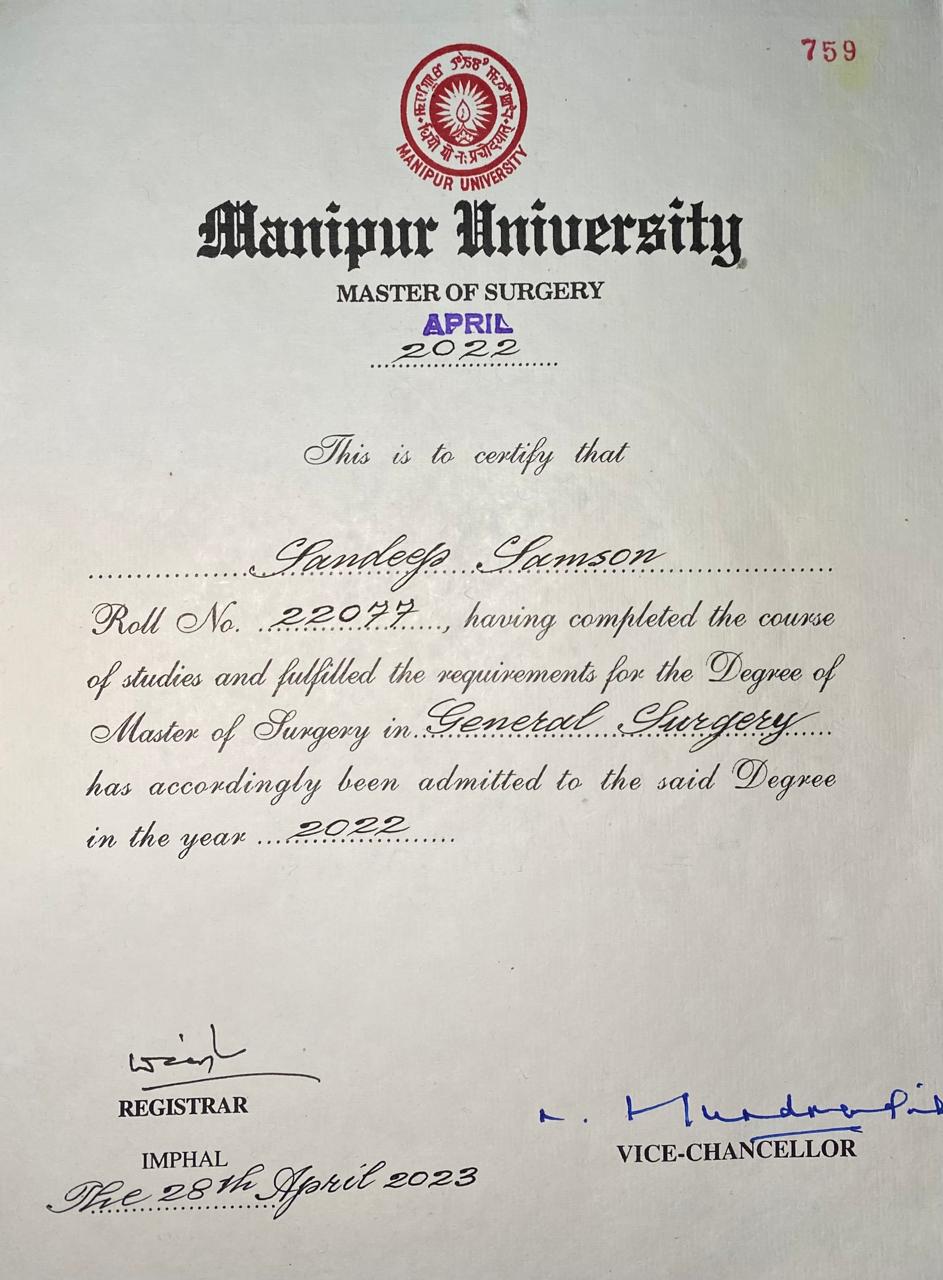 759
धियो यो नः प्रचोदयात्
MANIPUR UNIVERSITY
Manipur University
MASTER OF SURGERY
APRIL
2022
This is to certify that
Sandeep Samson
Roll No. 22077, having completed the course
of studies and fulfilled the requirements for the Degree of
Master of Surgery in General Surgery
has accordingly been admitted to the said Degree
in the year 2022
REGISTRAR
VICE-CHANCELLOR
IMPHAL
The 28th April 2023